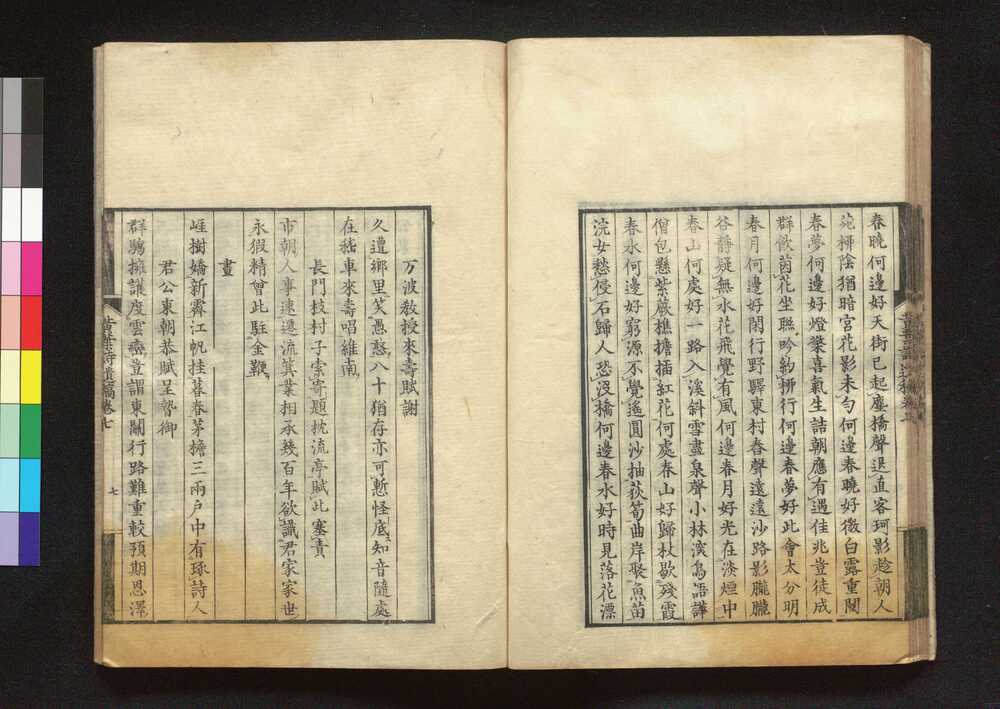 春曉何邊好天街已起塵橋聲退直客珂影趁朝人
苑掃陰猶暗宮花影未勻何邊春曉好微白露重闉
春夢何邊好燈檠喜氣生詰朝應有遇佳兆豈徒成
群飲茵花坐聯吟約柳行何邊春夢好此會太分明
春月何邊好閑行野驛東村舂聲遠遠沙路影朧朧
谷靜疑無水花飛覺有風何邊春月好光在淡煙中
春山何處好一路入溪斜雪盡泉聲小林深鳥語譁
僧包懸紫蕨樵擔插紅花何處春山好歸杖欹殘霞
春水何邊好窮源不覺遙圓沙抽荻筍曲岸聚魚苗
浣女愁侵石歸人恐沒橋何邊春水好時見落花漂
万波教授來壽賦謝
久遭鄉里笑愚憨八十猶存亦可慙怪底知音隨處
在嵇車來壽唱維南
長門技村子索寄題枕流亭賦此塞責
市朝人事速遷流箕業相承幾百年欲識君家家世
永猳精曾此駐金鞭
畫
崕樹嬌新霽江帆挂暮春茅檐三兩戶中有琢詩人
君公東朝恭賦呈贄御
群騶擁護度雲巒豈謂東關行路難重較預期恩澤
黃葉詩遺稿卷七
七